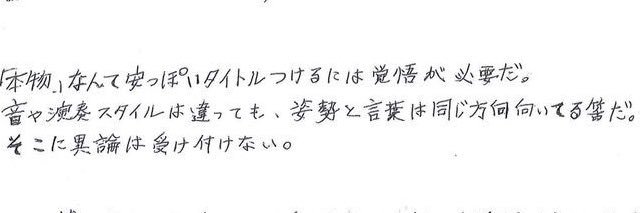 「本物」なんて安っぽいタイトルつけるには覚悟が必要だ。
音や演奏スタイルは違っても、姿勢と言葉は同じ方向向いてる筈だ。
そこに異論は受け付けない。